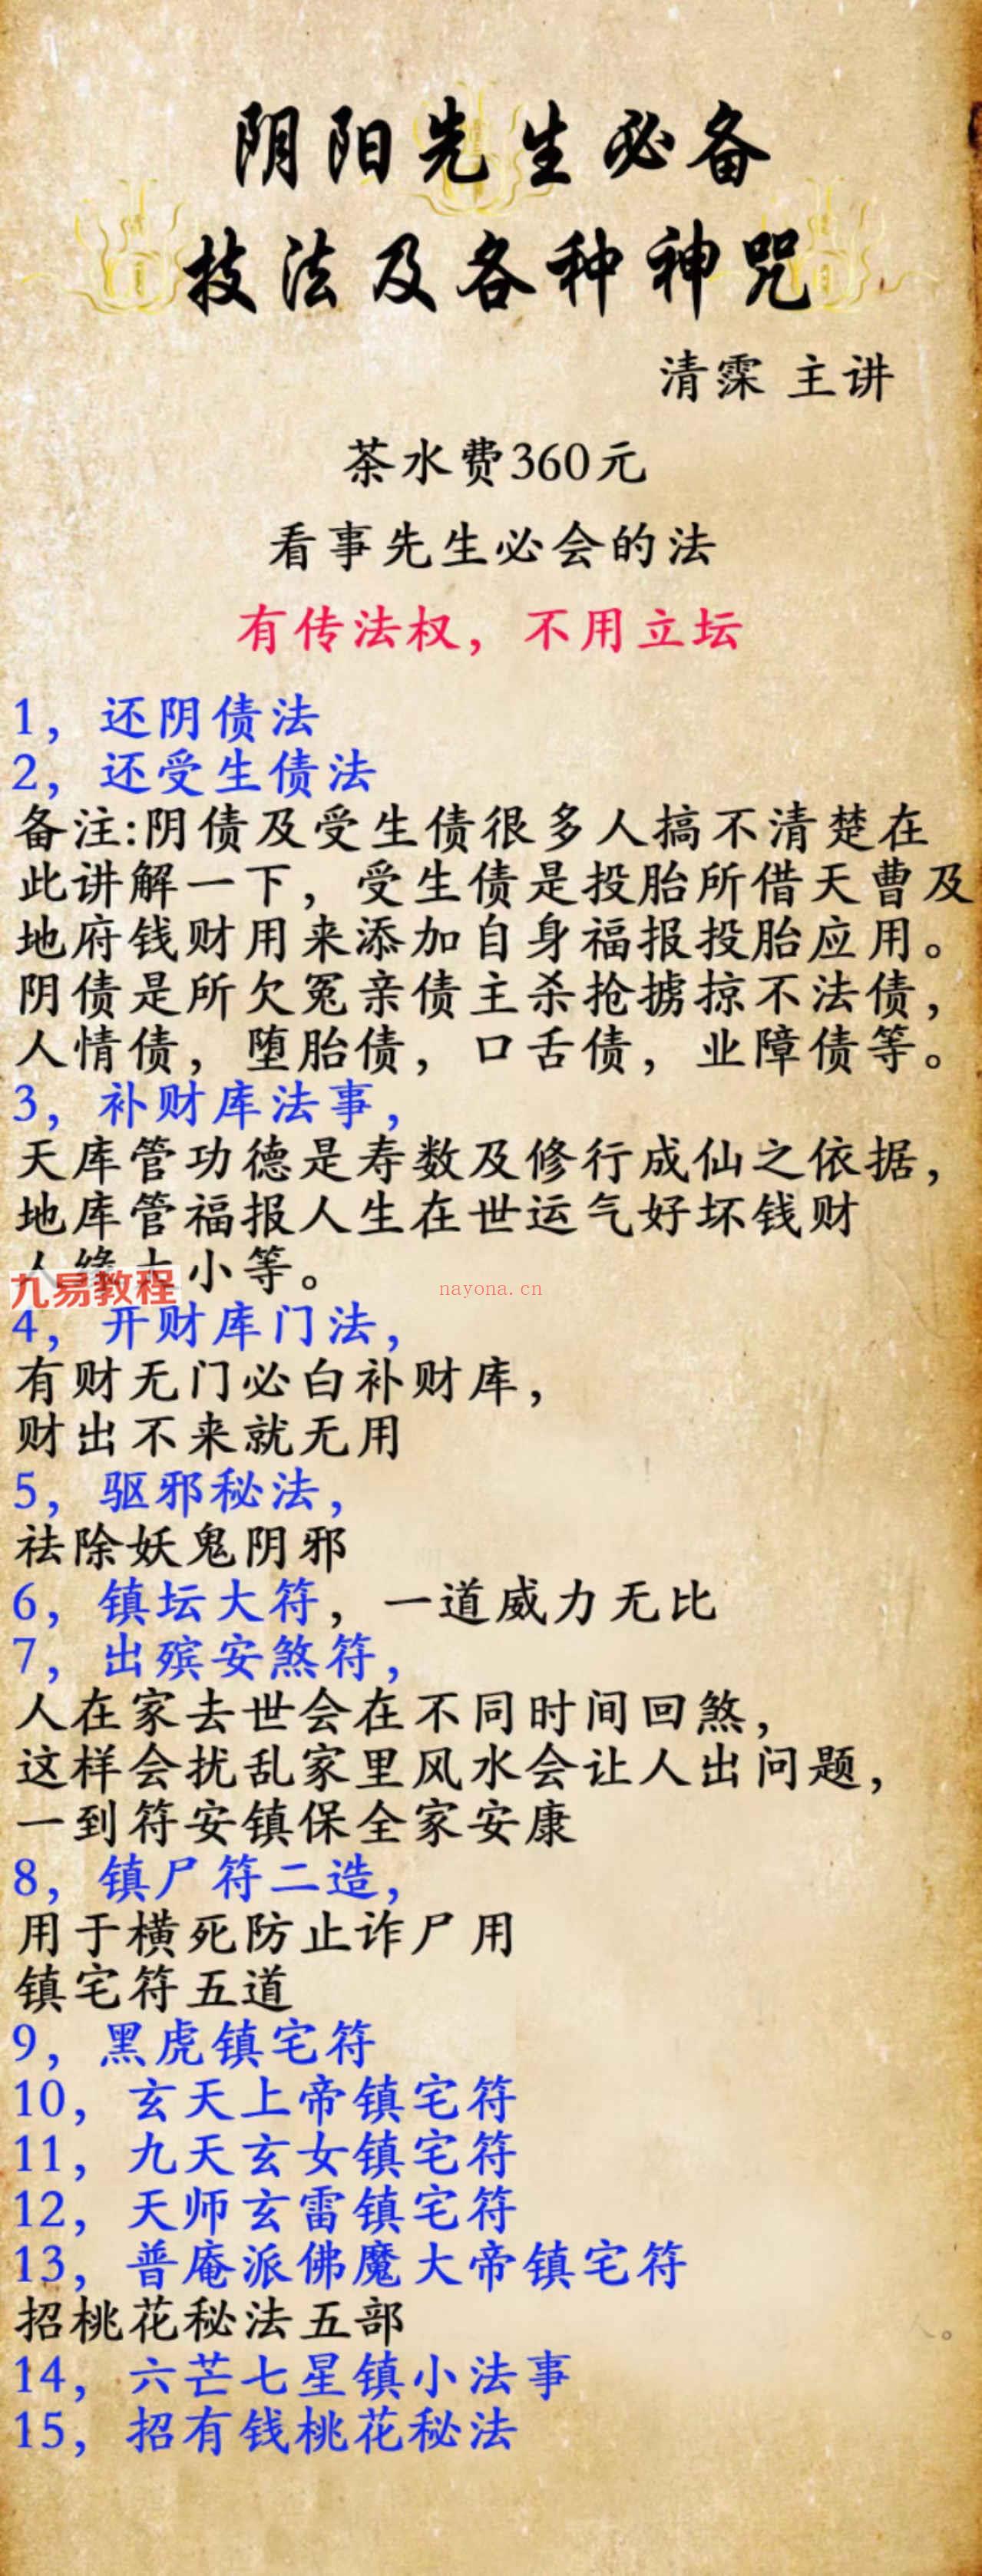 阴阳先生必备
技法及各种神咒
清霂 主讲
茶水费360元
看事先生必会的法
有传法权，不用立坛
1，还阴债法
2，还受生债法
备注:阴债及受生债很多人搞不清楚在
此讲解一下，受生债是投胎所借天曹及
地府钱财用来添加自身福报投胎应用。
阴债是所欠冤亲债主杀抢掳掠不法债，
人情债，堕胎债，口舌债，业障债等。
3，补财库法事，
天库管功德是寿数及修行成仙之依据，
地库管福报人生在世运气好坏钱财
人缘大小等。
九易教程
nayona.cn
4，开财库门法，
有财无门必白补财库，
财出不来就无用
5，驱邪秘法，
祛除妖鬼阴邪
6，镇坛大符，一道威力无比
7，出殡安煞符，
人在家去世会在不同时间回煞，
这样会扰乱家里风水会让人出问题，
一到符安镇保全家安康
8，镇尸符二造，
用于横死防止诈尸用
镇宅符五道
9，黑虎镇宅符
10，玄天上帝镇宅符
11，九天玄女镇宅符
12，天师玄雷镇宅符
13，普庵派佛魔大帝镇宅符
招桃花秘法五部
14，六芒七星镇小法事
15，招有钱桃花秘法